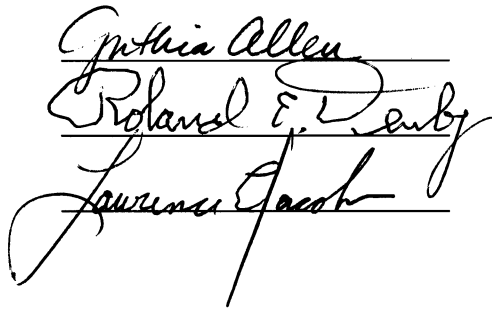 Cynthia Allen
Roland E. Derby
Laurence Jacobs